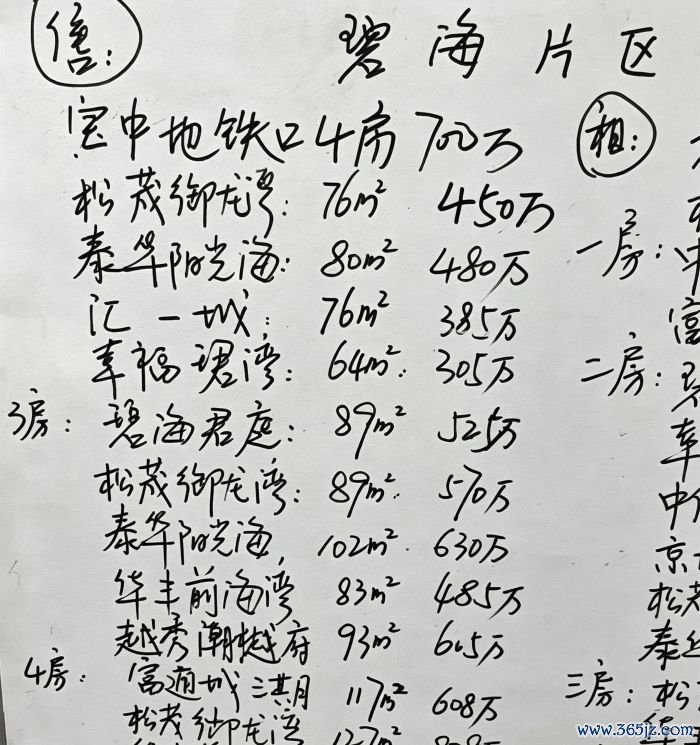 售: 碧海片区
宝中地铁口4房 700万
租:
松茂御龙湾: 76m² 450万
泰华阳光海: 80m² 480万
一房:
汇一城: 76m² 385万
幸福珺湾: 64m². 305万
二房:
3房: 碧海君庭: 89m² 525万
松茂御龙湾: 89m². 570万
泰华阳光海 102m². 630万
华丰前海湾 83m² 485万
越秀潮樾府 93m² 605万
4房: 富通城三期 117m² 608万
三房: 松
松茂御龙湾 127m²
www.365jz.com